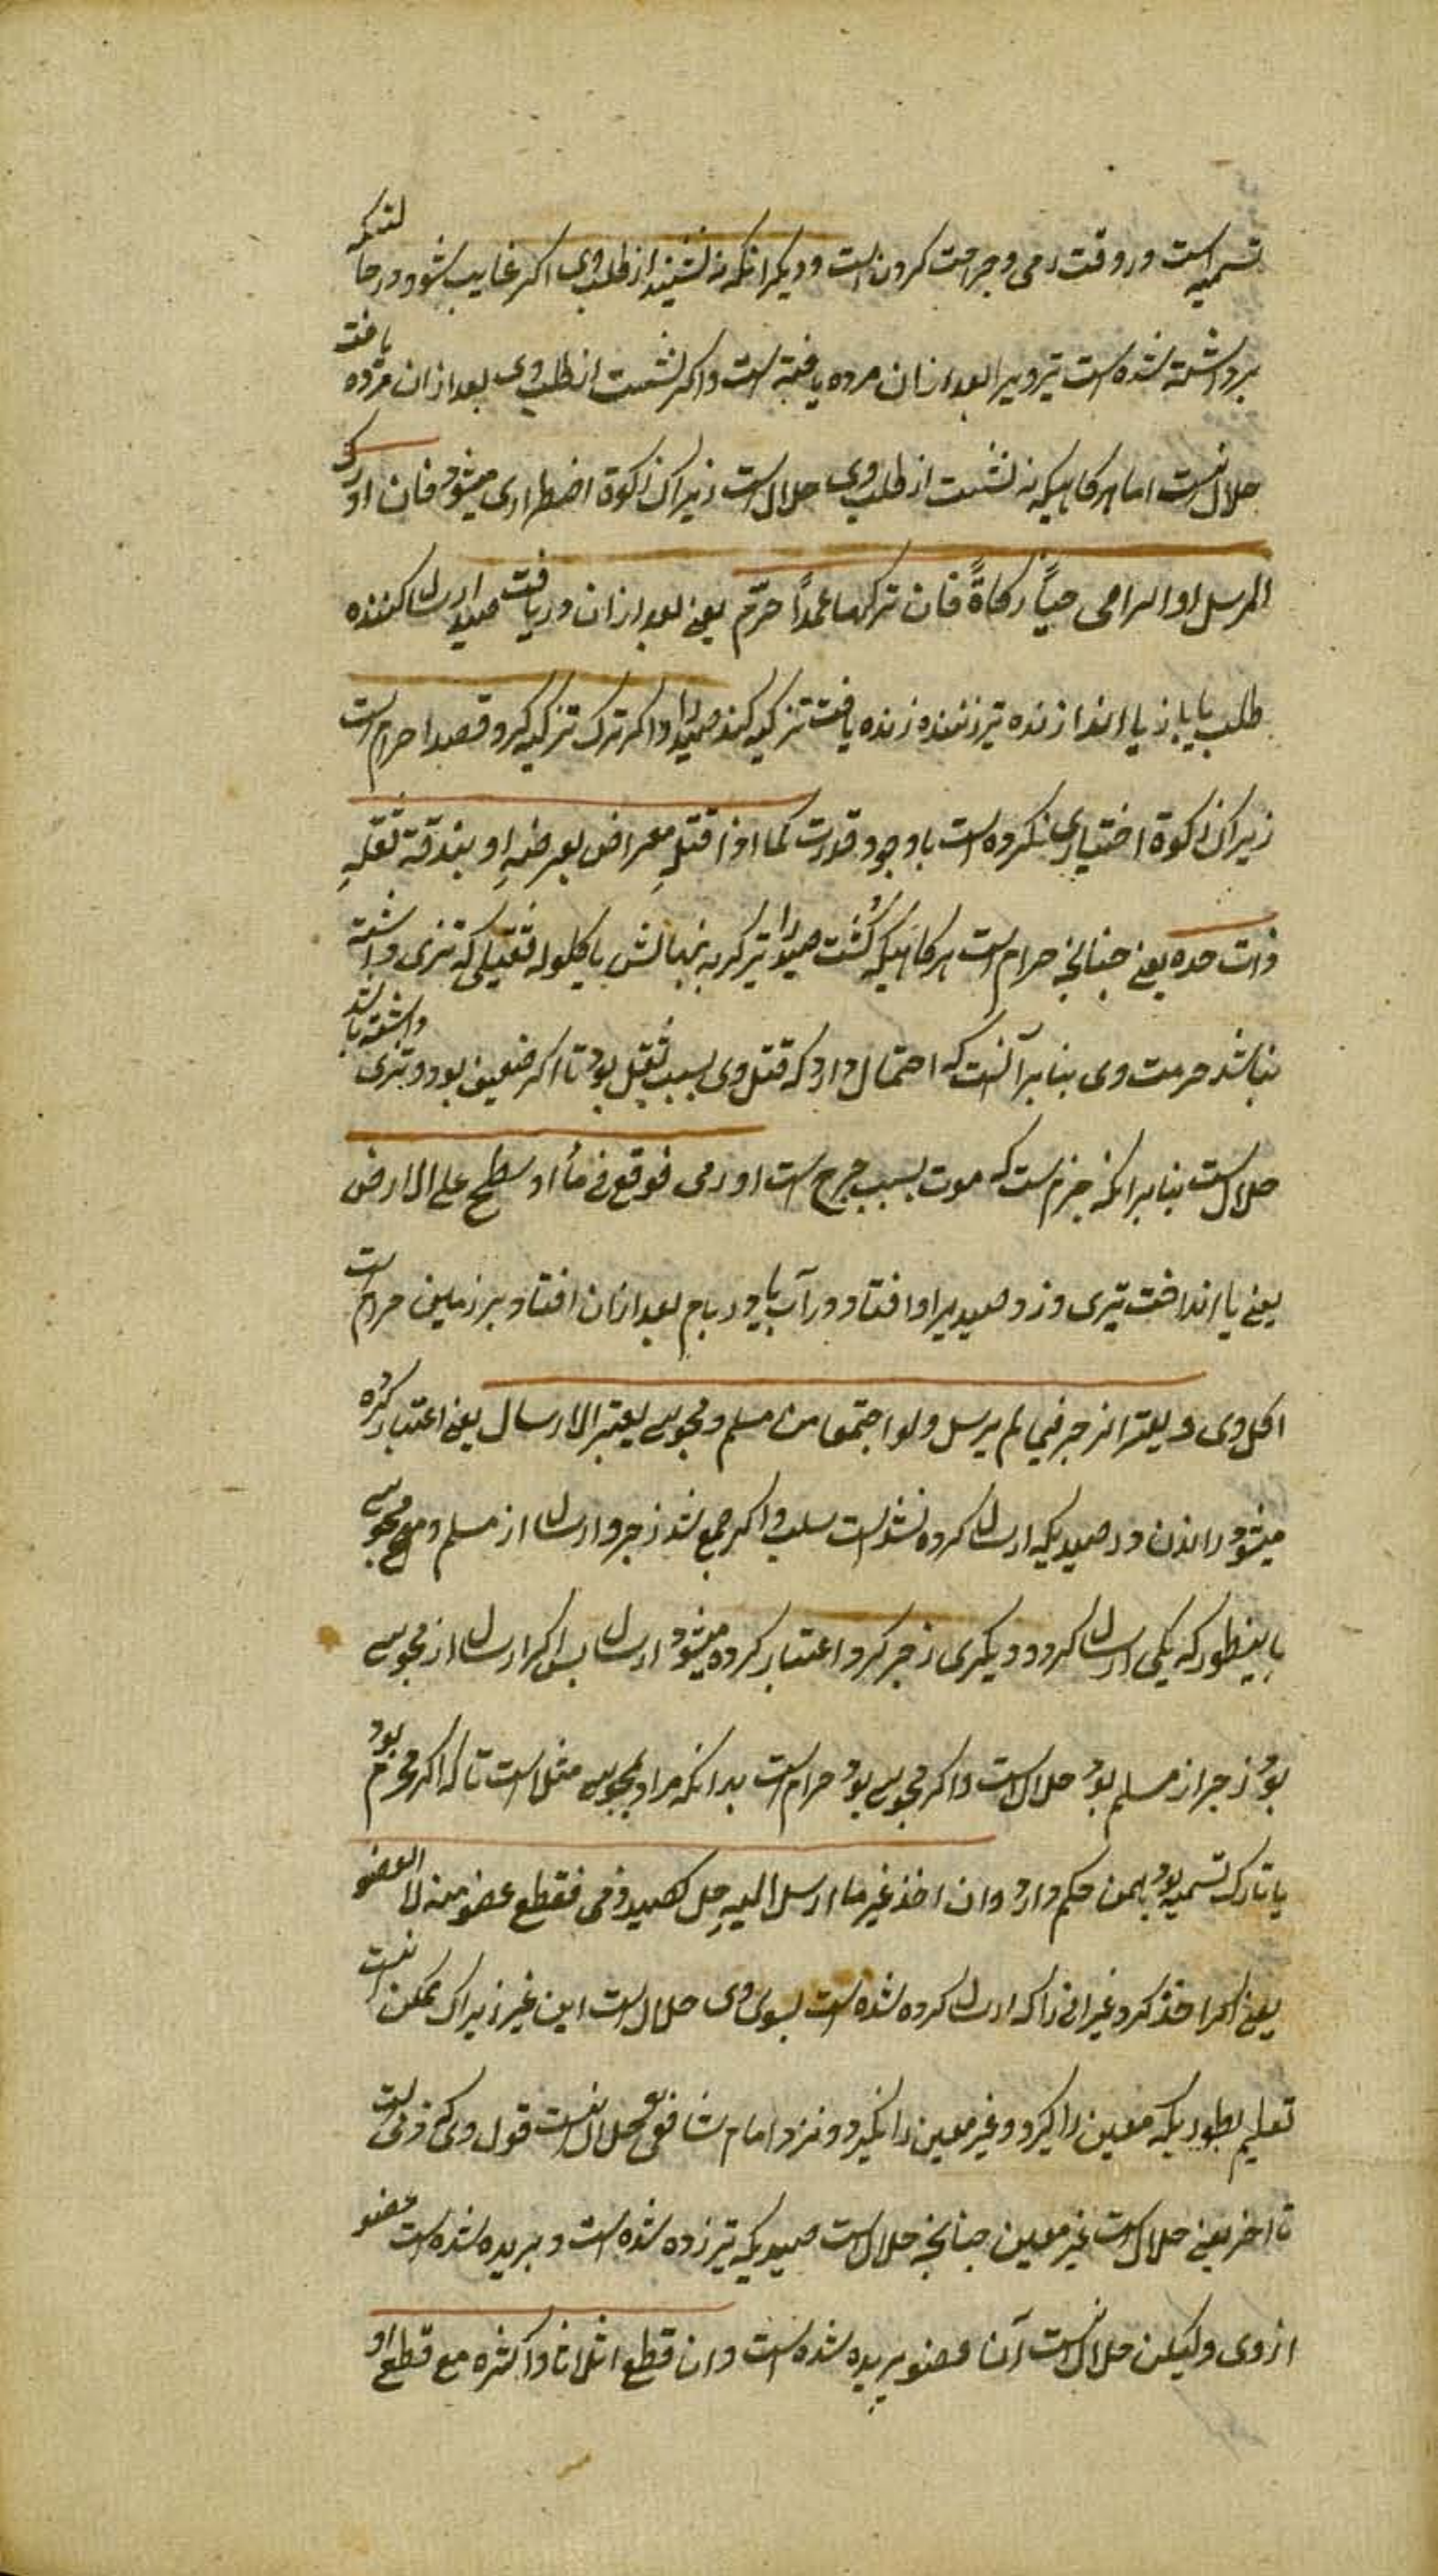 تسمیه است در وقت رمی و جراحت کردن است و دیکر انکه نه نشیند از طلب وی اکر غایب شود و در حالتیکه
برداشته شده است تیر ویرا بعد ازان مرده یافته است و اکر نشست از طلب وی بعد ازان مرده یافت
حلال نیست اما هرکاهیکه نه نشست از طلب وی حلال است زیراک ذکوة اضطراری میشود فان ادرک
المرسل او الرامی حیاً ذکاة فان ترکها عمداً حرّم یعنی بعد ازان دریافت صید ارسال کننده
طلب یا باز یا اندازنده تیر زننده زنده یافت تزکیه کند صید را و اکر ترک تزکیه کرد قصدا حرام است
زیراک ذکوة اختیاری نکرده است باوجود قدرت کما اذا قتلهِ معراض بعرضهِ او بندقة ثقلهِ
ذات حده یعنی چنانچه حرام است هرکاهیکه کُشت صید را تیر کر به نهالش یا کلوله ثقیلی که تیزی داشته
نباشد حرمت وی بنابر آنست که احتمال دارد که قتل وی بسبب ثقل بود تا اکر خفیف بود و تیزی داشته باشد
حلال است بنابر انکه جزم است که موت بسبب جرح است او رمی فوقع فی ماء او سطح علی الارض
یعنی یا انداخت تیری و زد صید برا و افتاد در آب یا در بام بعد ازان افتاد بر زمین حرام است
اکل وی و یعتبر الزجر فی لم یرسل ولو اجتمعا من مسلم و مجوسے یعتبر الارسال یعنی اعتبار کرده
میشود راندن در صیدیکه ارسال کرده نشد است سلب و اکر جمع شد زجر و ارسال از مسلم و مع مجوسے
باینطور که یکی ارسال کرد و دیکری زجر کرد اعتبار کرده میشود ارسال پس اکر ارسال از مجوسے
بود زجر از مسلم بود حلال است و اکر مجوسے بود حرام است بدانکه مراد بمجوسے مثل است تا که اکر محرم بود
یا تارک تسمیه بود همین حکم دارد وان اخذ غیر ما ارسل الیهِ حِل کصید رمی فقطع عضو منه لا العضو
یعنی اکر اخذ کرد غیر انی را که ارسال کرده شده است بسوی وی حلال است این غیر زیراک ممکن نیست
تعلیم بطوریکه معین را کیرد و غیر معین را نکیرد و نزد امام شافعی حلال نیست قول وی کرمی است
تا اخر یعنی حلال است غیر معین چنانچه حلال است صیدیکه تیر زده شده است و بریده شده است عضو
از وی و لیکن حلال نیست آن عضو بریده شده است وان قطع اثلاثا و اکثره مع قطع او